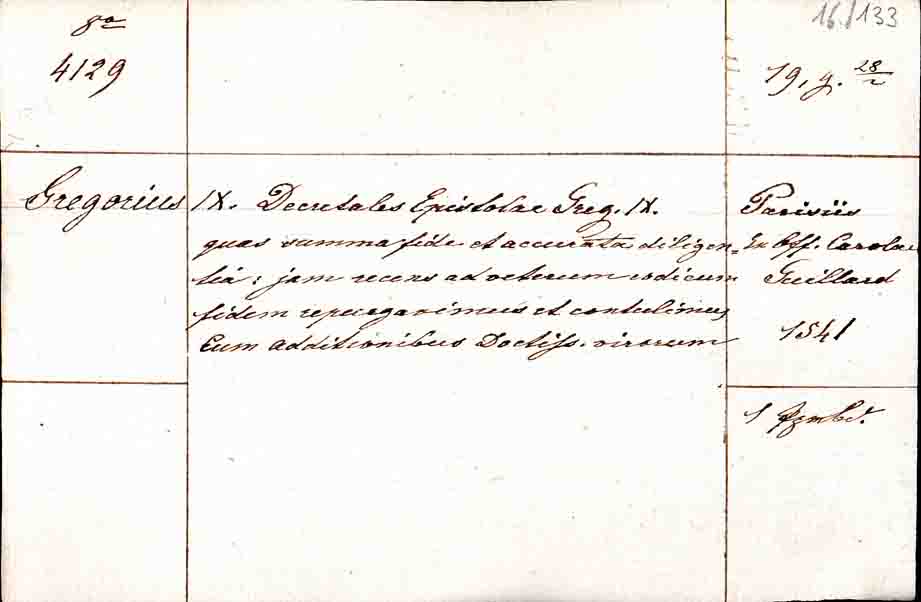 8o
4129
16./133
19, g. 28/2
Gregorius IX. Decretales Epistolae Greg. IX.
quas summa fide et accurata diligen=
tia; jam recens ad veterum codicum
fidem repurgavimus et contulimus
Cum additionibus Doctiss. virorum
Parisiis
Ex Off. Carolae
Guillard
1541
1 Pgmbd.